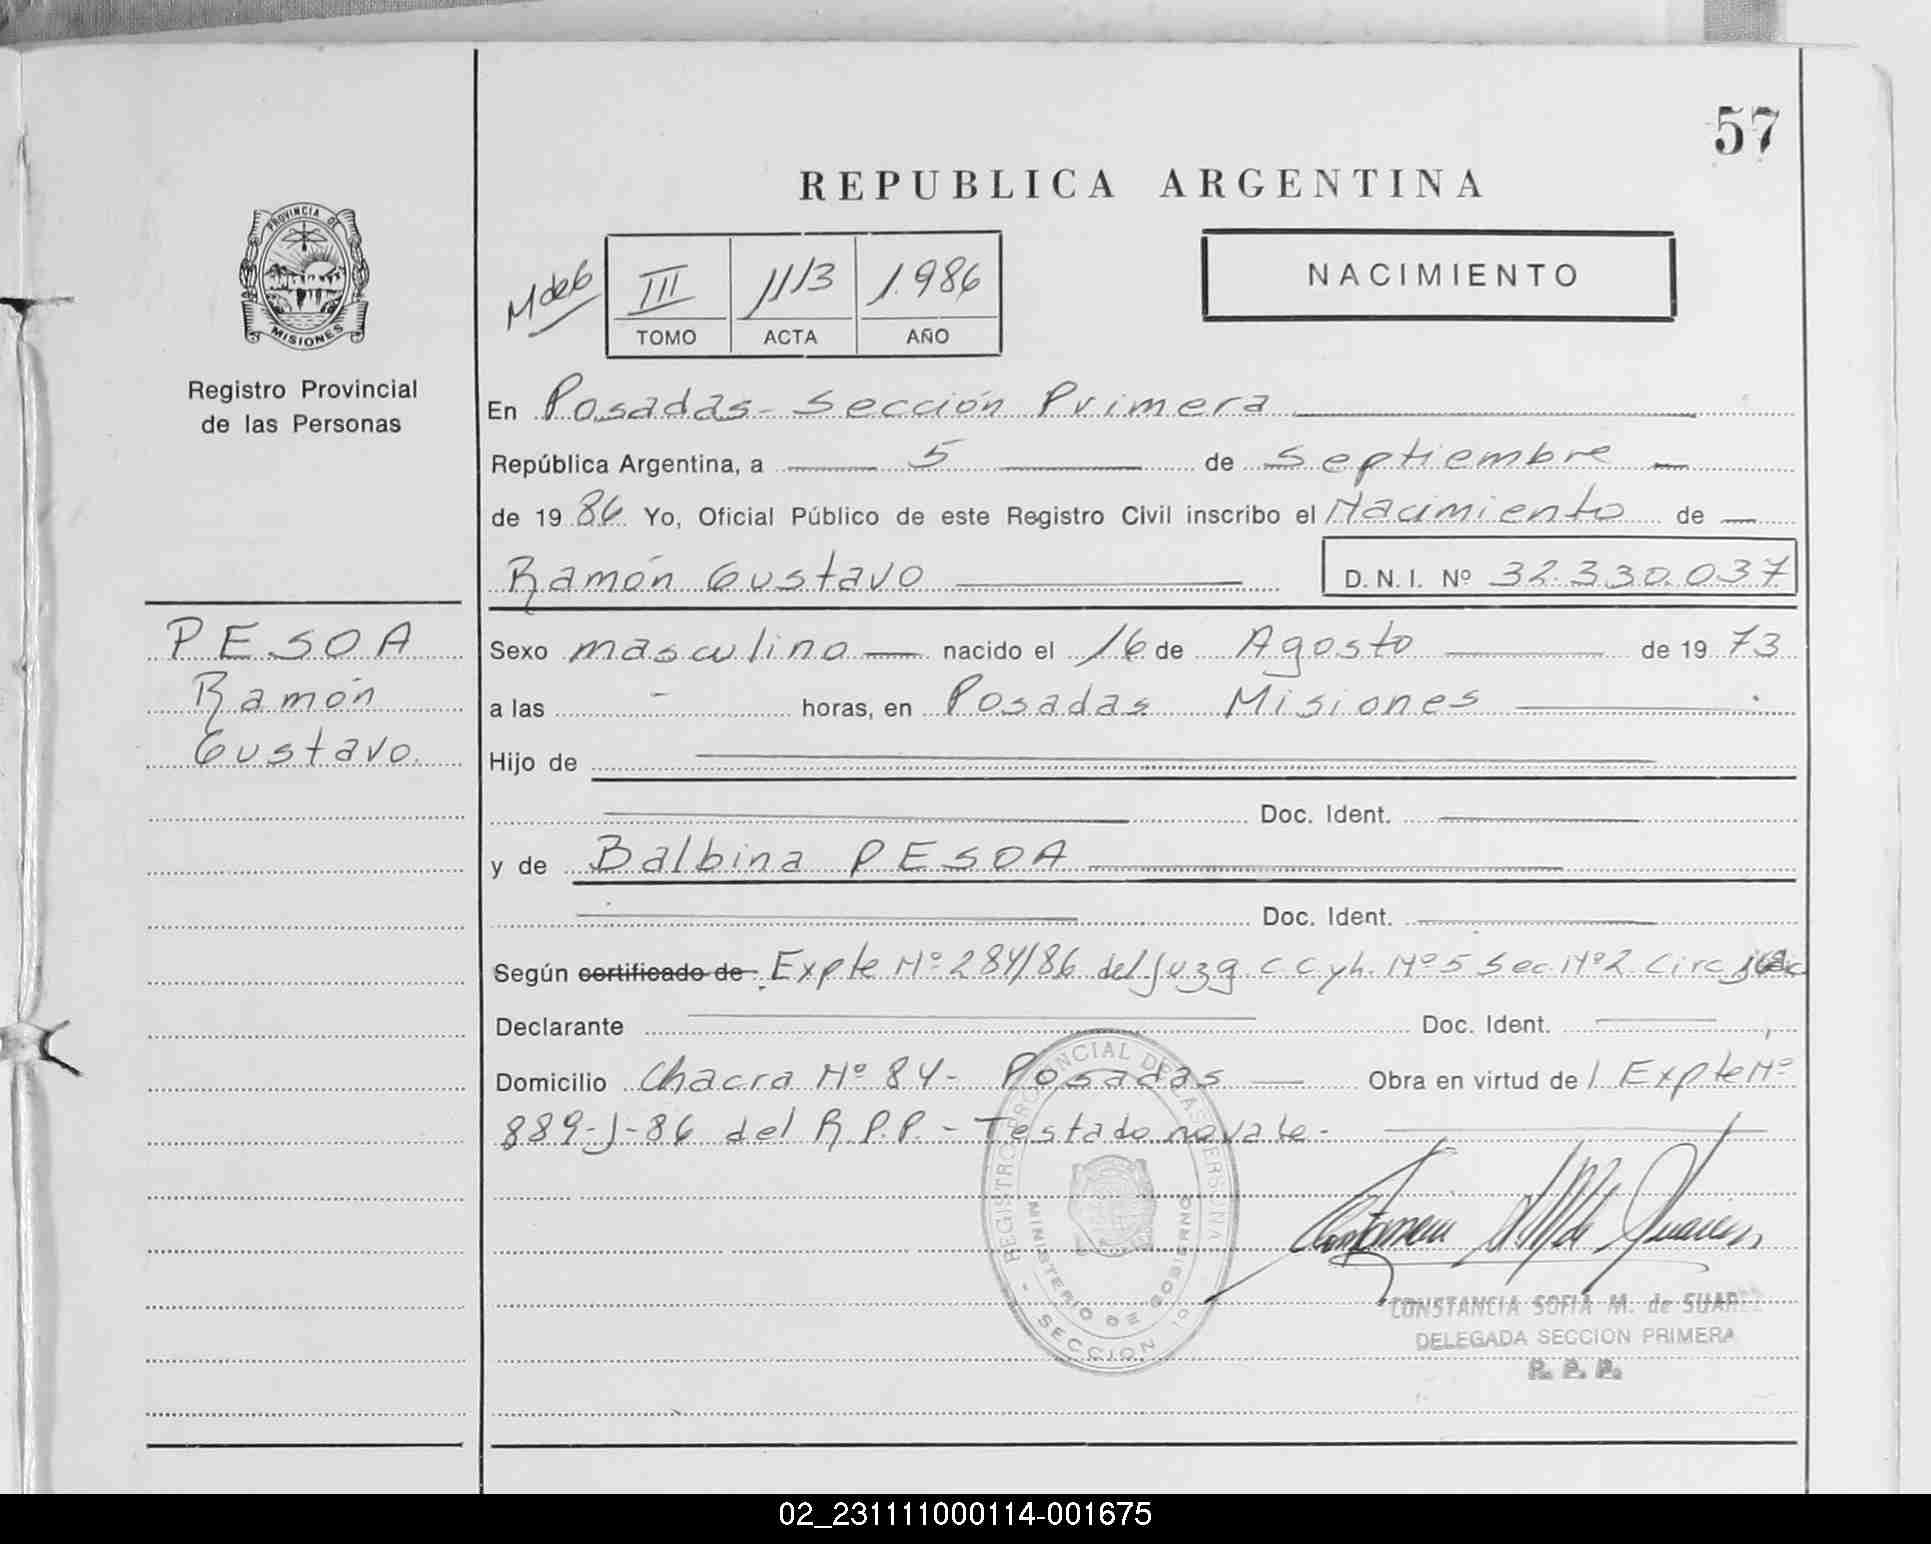 57
REPUBLICA ARGENTINA
PROVINCIA DE
MISIONES
Registro Provincial
de las Personas
III 1113 1.986
TOMO ACTA AÑO
NACIMIENTO
En Posadas - Sección Primera
República Argentina, a 5 de Septiembre
de 19 86 Yo, Oficial Público de este Registro Civil inscribo el Nacimiento de
Ramón Gustavo D.N.I. Nº 32.330.037
PESOA
Ramón
Gustavo.
Sexo masculino nacido el 16 de Agosto de 19 73
a las - horas, en Posadas Misiones
Hijo de
Doc. Ident.
y de Balbina PESOA
Doc. Ident.
Según certificado de Expte Nº 284/86 del Juzg. C C y h. Nº 5 Sec. Nº 2 Circ
Declarante Doc. Ident.
Domicilio Chacra Nº 84 - Posadas Obra en virtud de Expte Nº
889-J-86 del R.P.P. - Testado no vale -
REGISTRO PROVINCIAL DE LAS PERSONAS
MINISTERIO DE GOBIERNO
SECCION 1º
CONSTANCIA SOFIA M. de SUAREZ
DELEGADA SECCION PRIMERA
R. P. P.
02_231111000114-001675